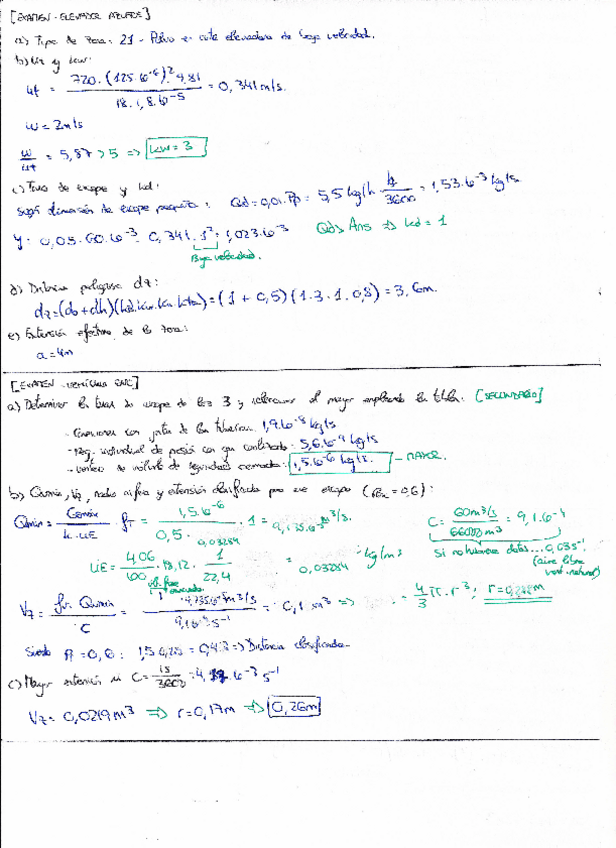 [EXAMEN - ELEVADOR AZUFRE]
a) Tipo de zona: 21 - Polvo en elevadora de baja velocidad.
b)
ut = 720 · (125.10^-6)² · 9,81 / 18 · 1,8.10^-5 = 0,341 m/s.
w = 2m/s
w/ut = 5,87 > 5 => kw = 3
c) Tasa de escape y kd:
dimensión de escape pequeño: Qd = 0,01 · = 5,5 kg/h · h/3600 = 1,53.10^-3 kg/s
y: 0,05 · 60.10^-3 · 0,341 · 1² = 1,023.10^-3 Qd > Ans => kd = 1
Baja velocidad.
d) Distancia peligrosa dz:
dz = (do + dh)(kd.kw. ) = (1 + 0,5)(1.3.1.0,8) = 3,6m.
e) Extensión efectiva de la zona:
a = 4m
[EXAMEN - ]
a) Determinar la tasa de escape de los 3 y seleccionar el mayor empleando la tabla. [SECUNDARIO]
- Conexiones con junta de la tubería: 1,9.10^-8 kg/s
- Reg. individual de presión con gas canalizado: 5,6.10^-7 kg/s
- de válvula de seguridad cerrada: 1,5.10^-6 kg/s. - MAYOR.
b) Qamin, Vz, radio esfera y extensión clasificada para ese escape ( = 0,6):
Qamin = / k.LIE · fT = 1,5.10^-6 / 0,5 · 0,03284 · 1 = 9,135.10^-5 m³/s. C = 60m³/s / 66000 m³ = 9,1.10^-4
LIE = 4,06/100 · 18,12 · 1/22,4 = 0,03284 kg/m³ Si no hubiese datos... 0,03 s^-1
(aire libre
vent. natural)
Vz = f. Qamin / C = m³/s / s^-1 = 0,1 m³ => 4/3 π . r³ ; r = m
Siendo = 0,6 : => Distancia clasificada
c) Mayor extensión si C = 15/3600 = 4,17.10^-3 s^-1
Vz = 0,0219 m³ => r = 0,17m => 0,26m